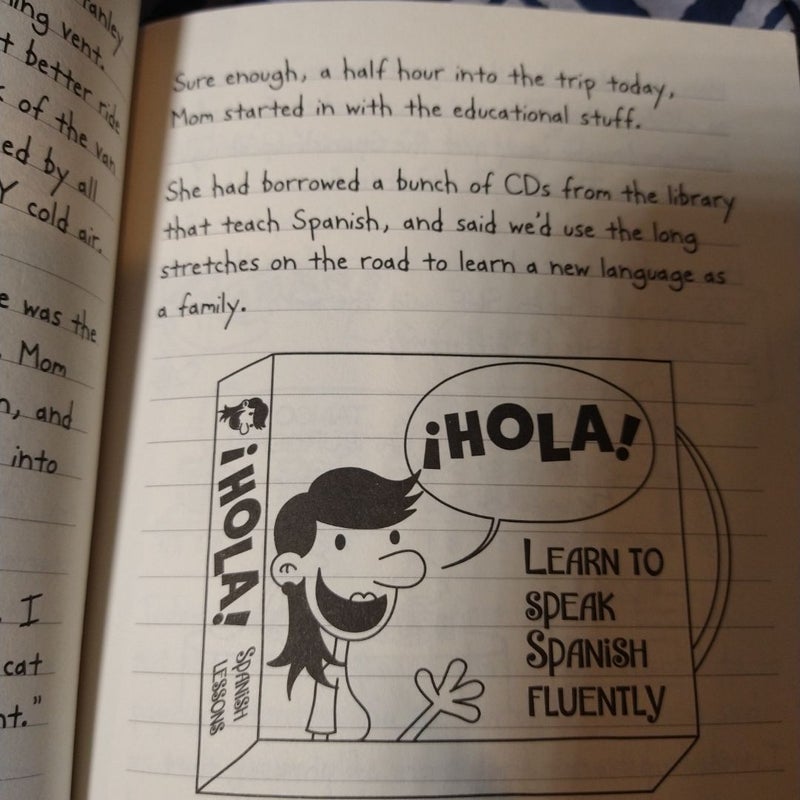 anley
ing vent.
t better ride
of the van
ed by all
Y cold air.
e was the
Mom
n, and
into
I
cat
nt."
Sure enough, a half hour into the trip today,
Mom started in with the educational stuff.
She had borrowed a bunch of CDs from the library
that teach Spanish, and said we'd use the long
stretches on the road to learn a new language as
a family.
¡HOLA!
SPANISH
LESSONS
¡HOLA!
LEARN TO
SPEAK
SPANISH
FLUENTLY